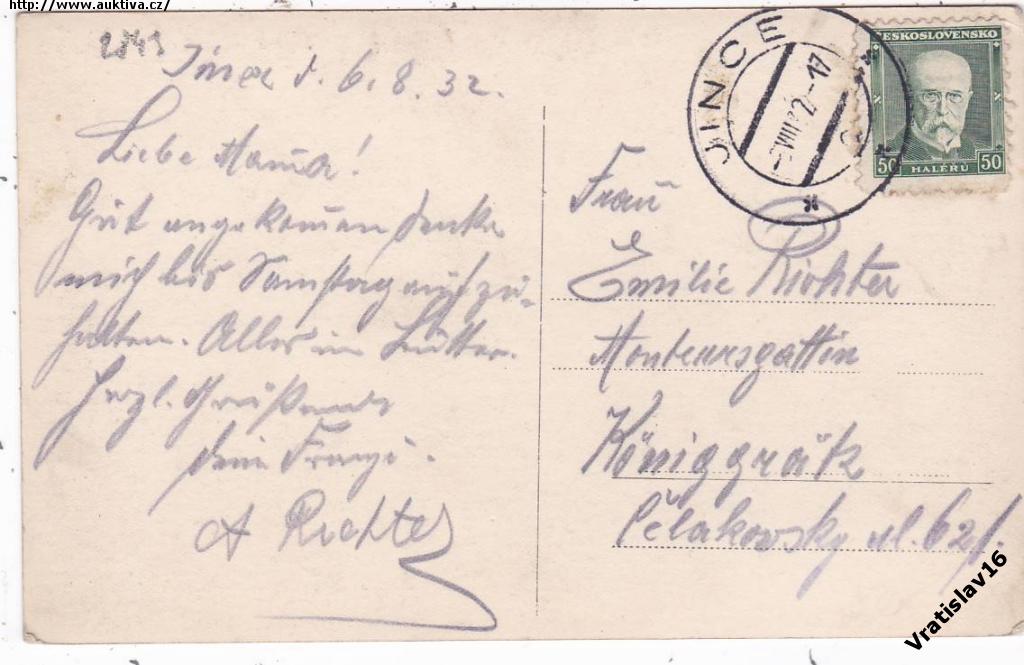 http://www.auktiva.cz/
Jince d. 6.8.32.
Liebe Mama!
Gut angekommen denke
mich bis Samstag aufzu-
halten. Alles in Butter.
Herzl. Grüßend
dein Franzi.
A Richter
JINCE
VIII 32-17
ČESKOSLOVENSKO
50 HALÉŘŮ 50
Frau
Emilie Richter
Monteursgattin
Königgrätz
Čelakowsky ul. 62/I.
Vratislav16